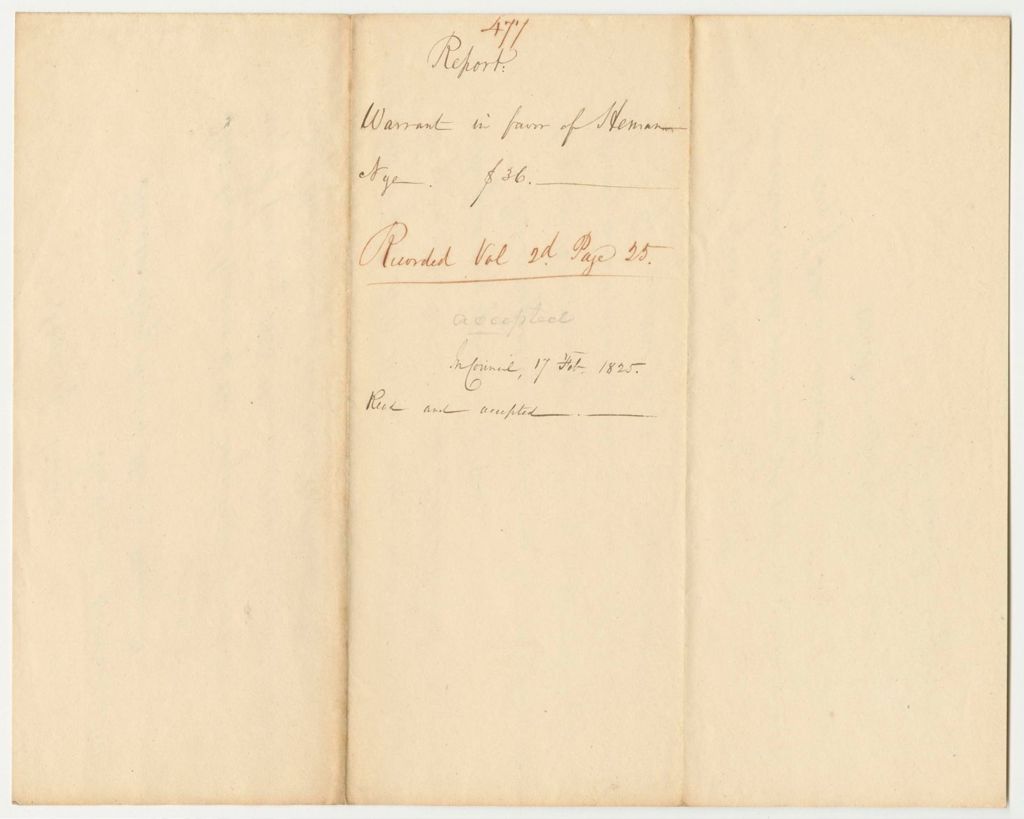 477
Report.
Warrant in favor of Heman
Nye. $36.
Recorded Vol 2d Page 25.
accepted
In Council, 17 Feb. 1825.
Read and accepted.